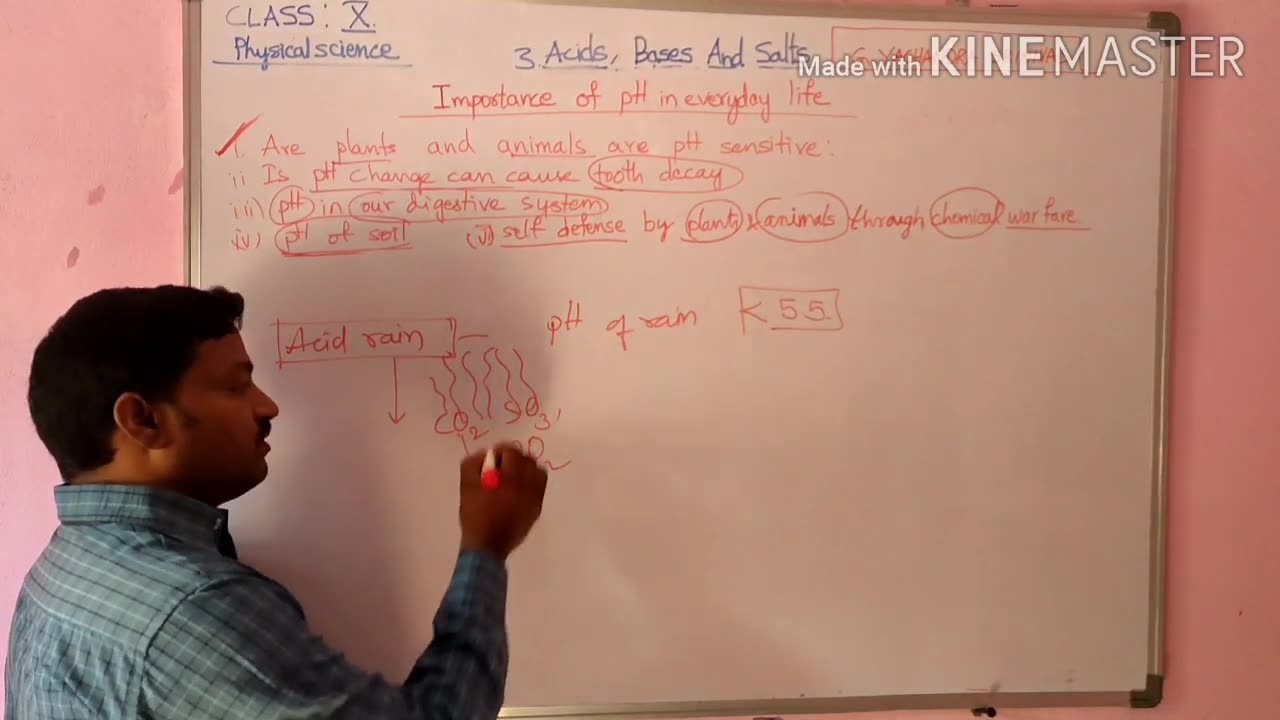 CLASS: X.
Physical science
3. Acids, Bases And Salts
Made with KINEMASTER
Importance of pH in everyday life
i. Are plants and animals are pH sensitive:
ii Is pH change can cause tooth decay
iii) pH in our digestive system
iv) pH of soil (v) self defense by plants & animals through chemical war fare
Acid rain — pH of rain < 5.5.
CO2 SO3,